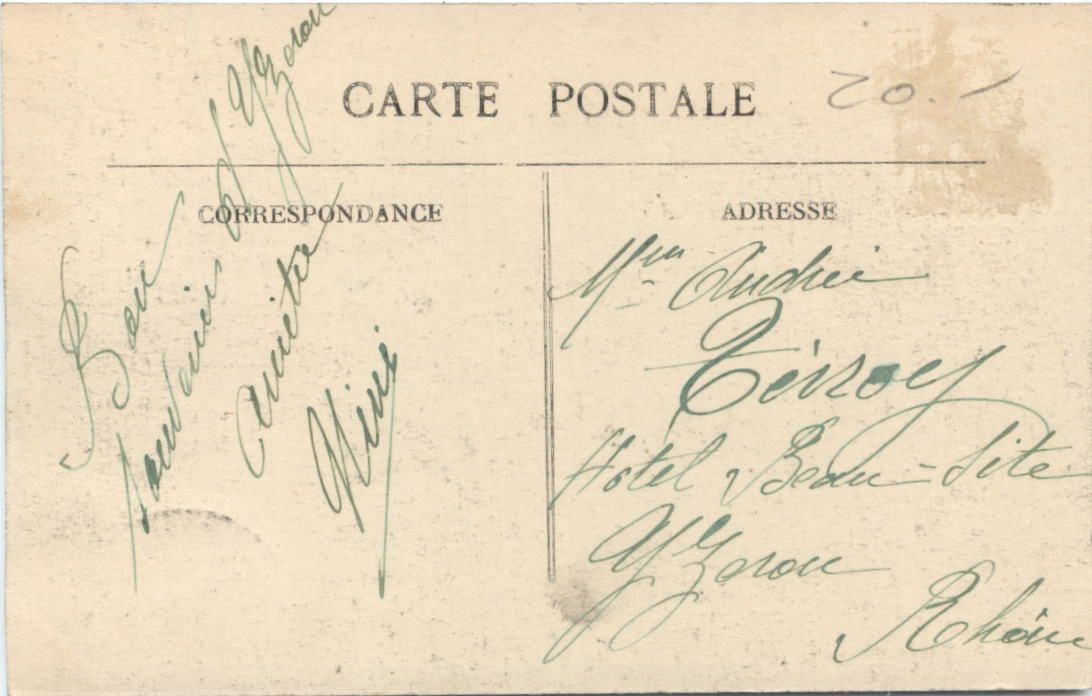 CARTE POSTALE
20.-
CORRESPONDANCE
Bon
souvenir d'Yzeron
amitié
Mimi
ADRESSE
Mme Andrée
Hôtel Beau-Site
Yzeron
Rhône